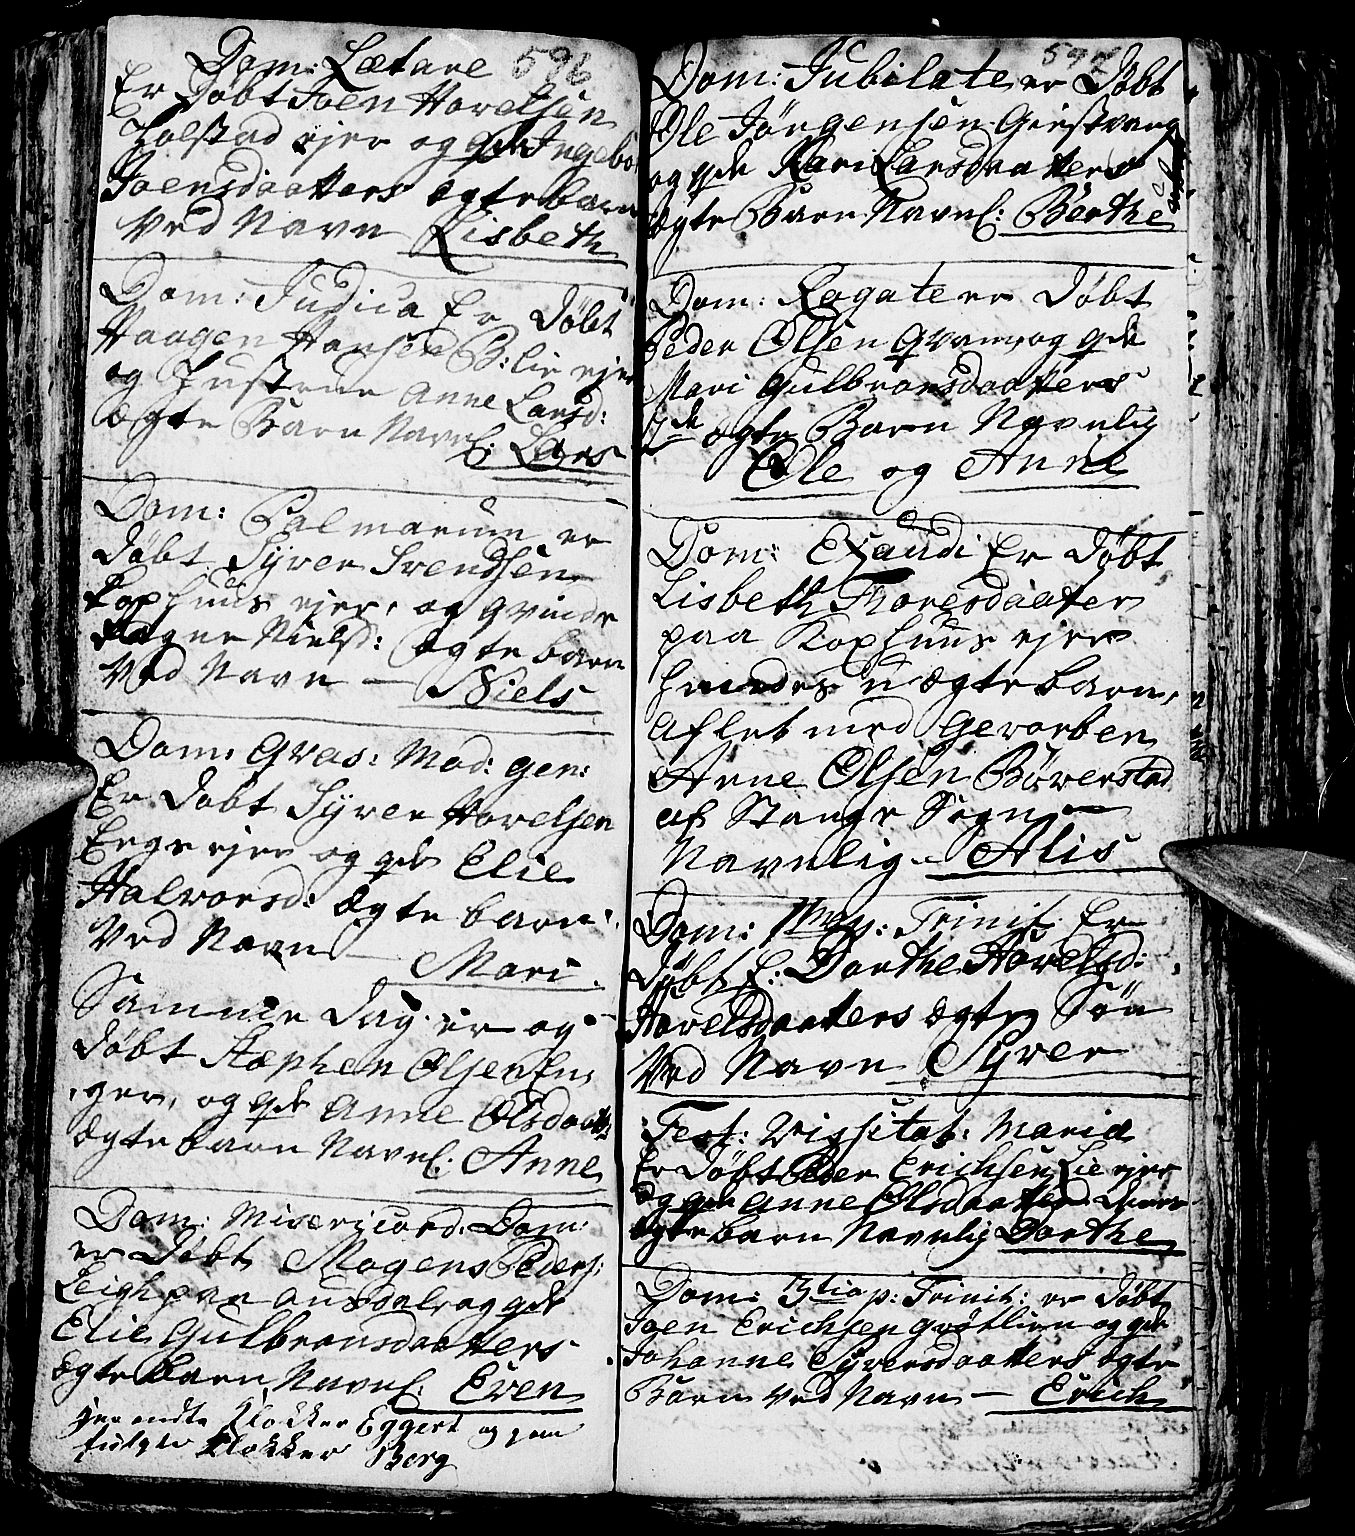 596
Dom: Lætare
Er Døbt Joen Hovelsen
Tolstad ejer og qde Ingebor
Joensdaatters ægte barn
Ved Navn Lisbeth
Dom: Judica Er Døbt
Haagen Hansen B: lie ejer
og Justru Anne Larsd:
ægte Barn Navnl: Lars
Dom: Palmarum er
døbt Syver Svendsen
Kophuus ejer, og Qvinde
Ragne Nielsd: Ægte barn
Ved Navn — Niels
Dom: Qvas: Mod: gen:
Er Døbt Syver Hovelsen
Enge ejer og qde Elie
Halvorsd: Ægte barn
Ved Navn — Mari
Samme Dag er og
døbt Stephen Olsen En,
ger, og qde Anne Olsdaatt:
Ægte barn Navnl: Anne
Dom: Misericord: Dom:
er Døbt Mogens Peders:
Leigh paa Ausdal og qde
Elie Gulbransdaatters
ægte barn Navnl: Even
her endte Klokker Eggert og paa
fulgte Klokker Berg
597
Dom: Jubilate er Døbt
Ole Jørgensen Giestvang
og qde Kari Larsdaatters
ægte Barn Navnl: Berthe
Dom: Rogate er Døbt
Peder Olsen Qvam og qde
Mari Gulbransdaatters
ægte Barn Navnlig
Ole og Anne
Dom: Exaudi Er Døbt
Lisbeth Thoresdaater
paa Kophuus ejer
hendes u ægte barn,
Aflet med Geworben
Arne Olsen Bøverstad
af Stange Sogn
Navnlig — Alis
Dom: 1ma p: Trinit: Er
Døbt l: Dorthe Hovelsd:
Hovelsdaatters ægte Søn
Ved Navn Syver
Fest: Vissitat: Mariæ
Er Døbt Peder Erichsen Lie ejer
og qde Anne Olsdaatter
ægte barn Navnlig Dorthe
Dom: 3tia p: Trinit: er Døbt
Joen Erichsen Grøtlien og qde
Johanne Syversdaatters ægte
Barn Ved Navn — Erich